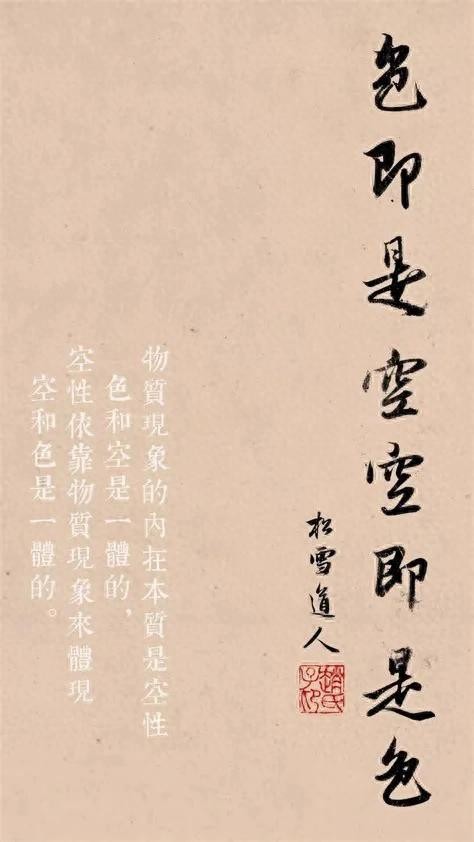 色即是空空即是色
松雪道人
趙氏子昂
物質現象的內在本質是空性
色和空是一體的，
空性依靠物質現象來體現
空和色是一體的。